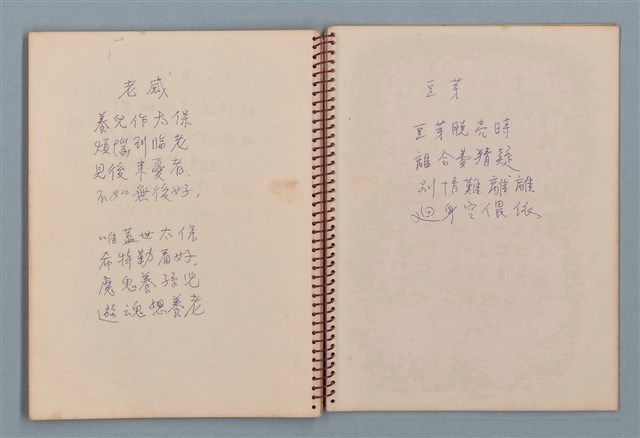 老感
養兒作太保
煩惱到临老
見後来憂者
不如無後好。
唯蓋世太保
希特勒看好
魔鬼養孫児
遊魂想養老
豆芽
豆芽脫壳時
離合費猜疑
別情難離離
迴身空偎依